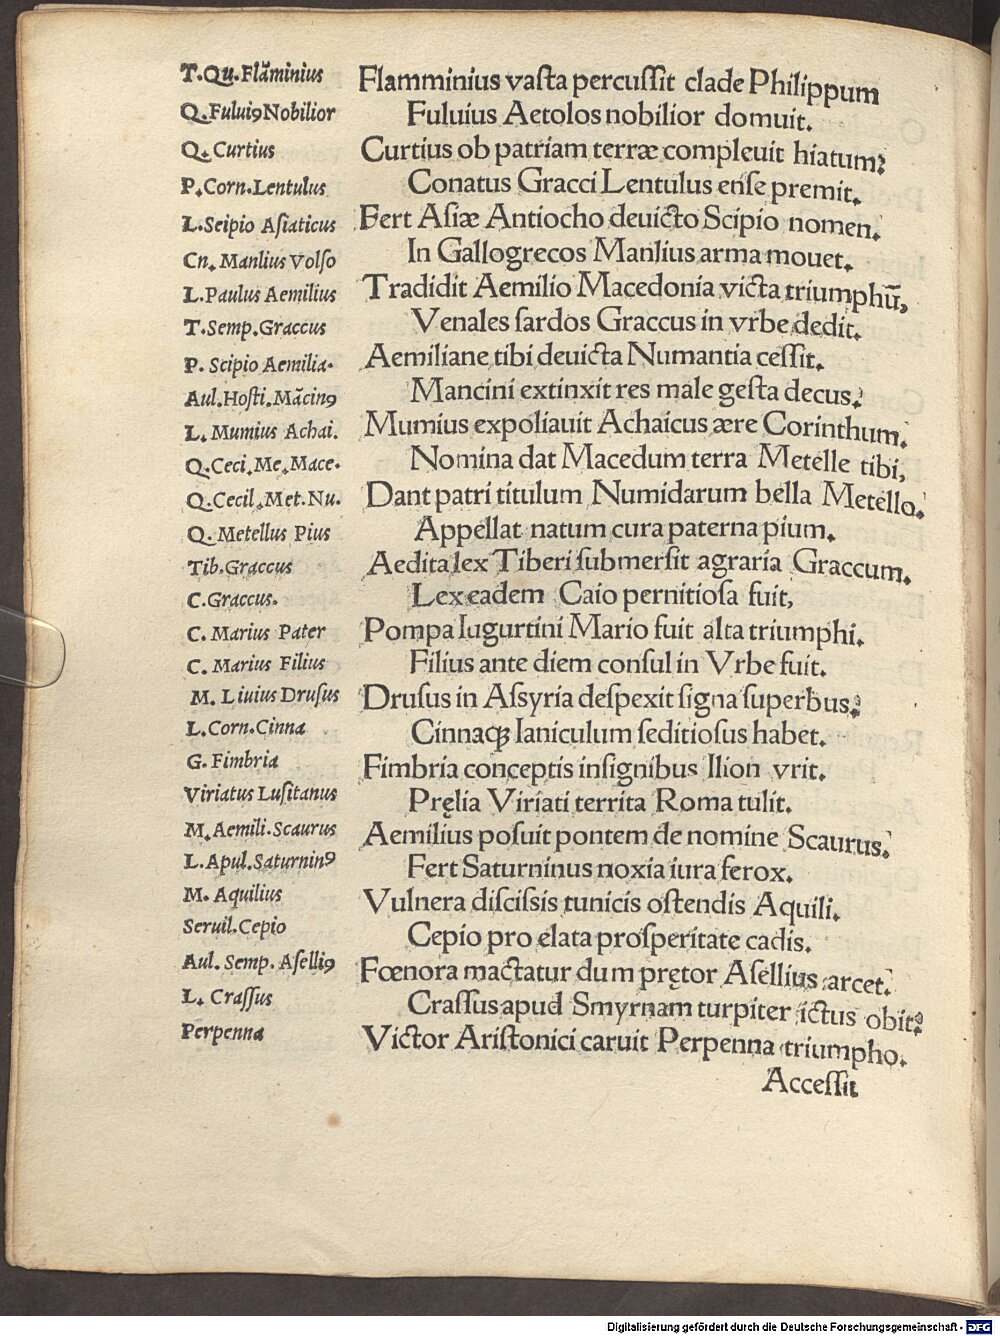 T.Qu.Flāminius Flamminius vaſta percuſſit clade Philippum
Q.Fuluiꝰ Nobilior Fuluius Aetolos nobilior domuit.
Q. Curtius Curtius ob patriam terræ compleuit hiatum:
P.Corn.Lentulus Conatus Gracci Lentulus enſe premit.
L.Scipio Aſiaticus Fert Aſiæ Antiocho deuicto Scipio nomen.
Cn. Manlius Volſo In Gallogrecos Manlius arma mouet.
L.Paulus Aemilius Tradidit Aemilio Macedonia victa triumphū,
T.Semp.Graccus Venales ſardos Graccus in vrbe dedit.
P. Scipio Aemilia. Aemiliane tibi deuicta Numantia ceſſit.
Aul.Hoſti.Mācinꝰ Mancini extinxit res male geſta decus:
L. Mumius Achai. Mumius expoliauit Achaicus ære Corinthum.
Q.Ceci.Me.Mace. Nomina dat Macedum terra Metelle tibi,
Q.Cecil.Met.Nu. Dant patri titulum Numidarum bella Metello.
Q. Metellus Pius Appellat natum cura paterna pium.
Tib.Graccus Aedita lex Tiberi ſubmerſit agraria Graccum.
C.Graccus. Lex eadem Caio pernitioſa fuit,
C. Marius Pater Pompa Iugurtini Mario fuit alta triumphi.
C. Marius Filius Filius ante diem conſul in Vrbe fuit.
M. Liuius Druſus Druſus in Aſſyria deſpexit ſigna ſuperbus:
L.Corn.Cinna Cinnaꝗ Ianiculum ſeditioſus habet.
G. Fimbria Fimbria conceptis inſignibus Ilion vrit.
Viriatus Luſitanus Pręlia Viriati territa Roma tulit.
M.Aemili.Scaurus Aemilius poſuit pontem de nomine Scaurus.
L.Apul.Saturninꝰ Fert Saturninus noxia iura ferox.
M. Aquilius Vulnera diſciſsis tunicis oſtendis Aquili.
Seruil.Cepio Cepio pro elata proſperitate cadis.
Aul. Semp. Aſelliꝰ Fœnora mactatur dum prętor Aſellius arcet.
L. Craſſus Craſſus apud Smyrnam turpiter ictus obit:
Perpenna Victor Ariſtonici caruit Perpenna triumpho.
Acceſſit
Digitalisierung gefördert durch die Deutsche Forschungsgemeinschaft - DFG